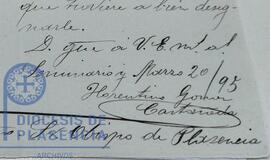 que tuviere a bien desig-
narle.
D. gue á V. E. m. a.
Seminario y Marzo 20/95
Florentino Gomez
Castañeda
S. Obispo de Plasencia
DIOCESIS DE
PLASENCIA
ARCHIVOS